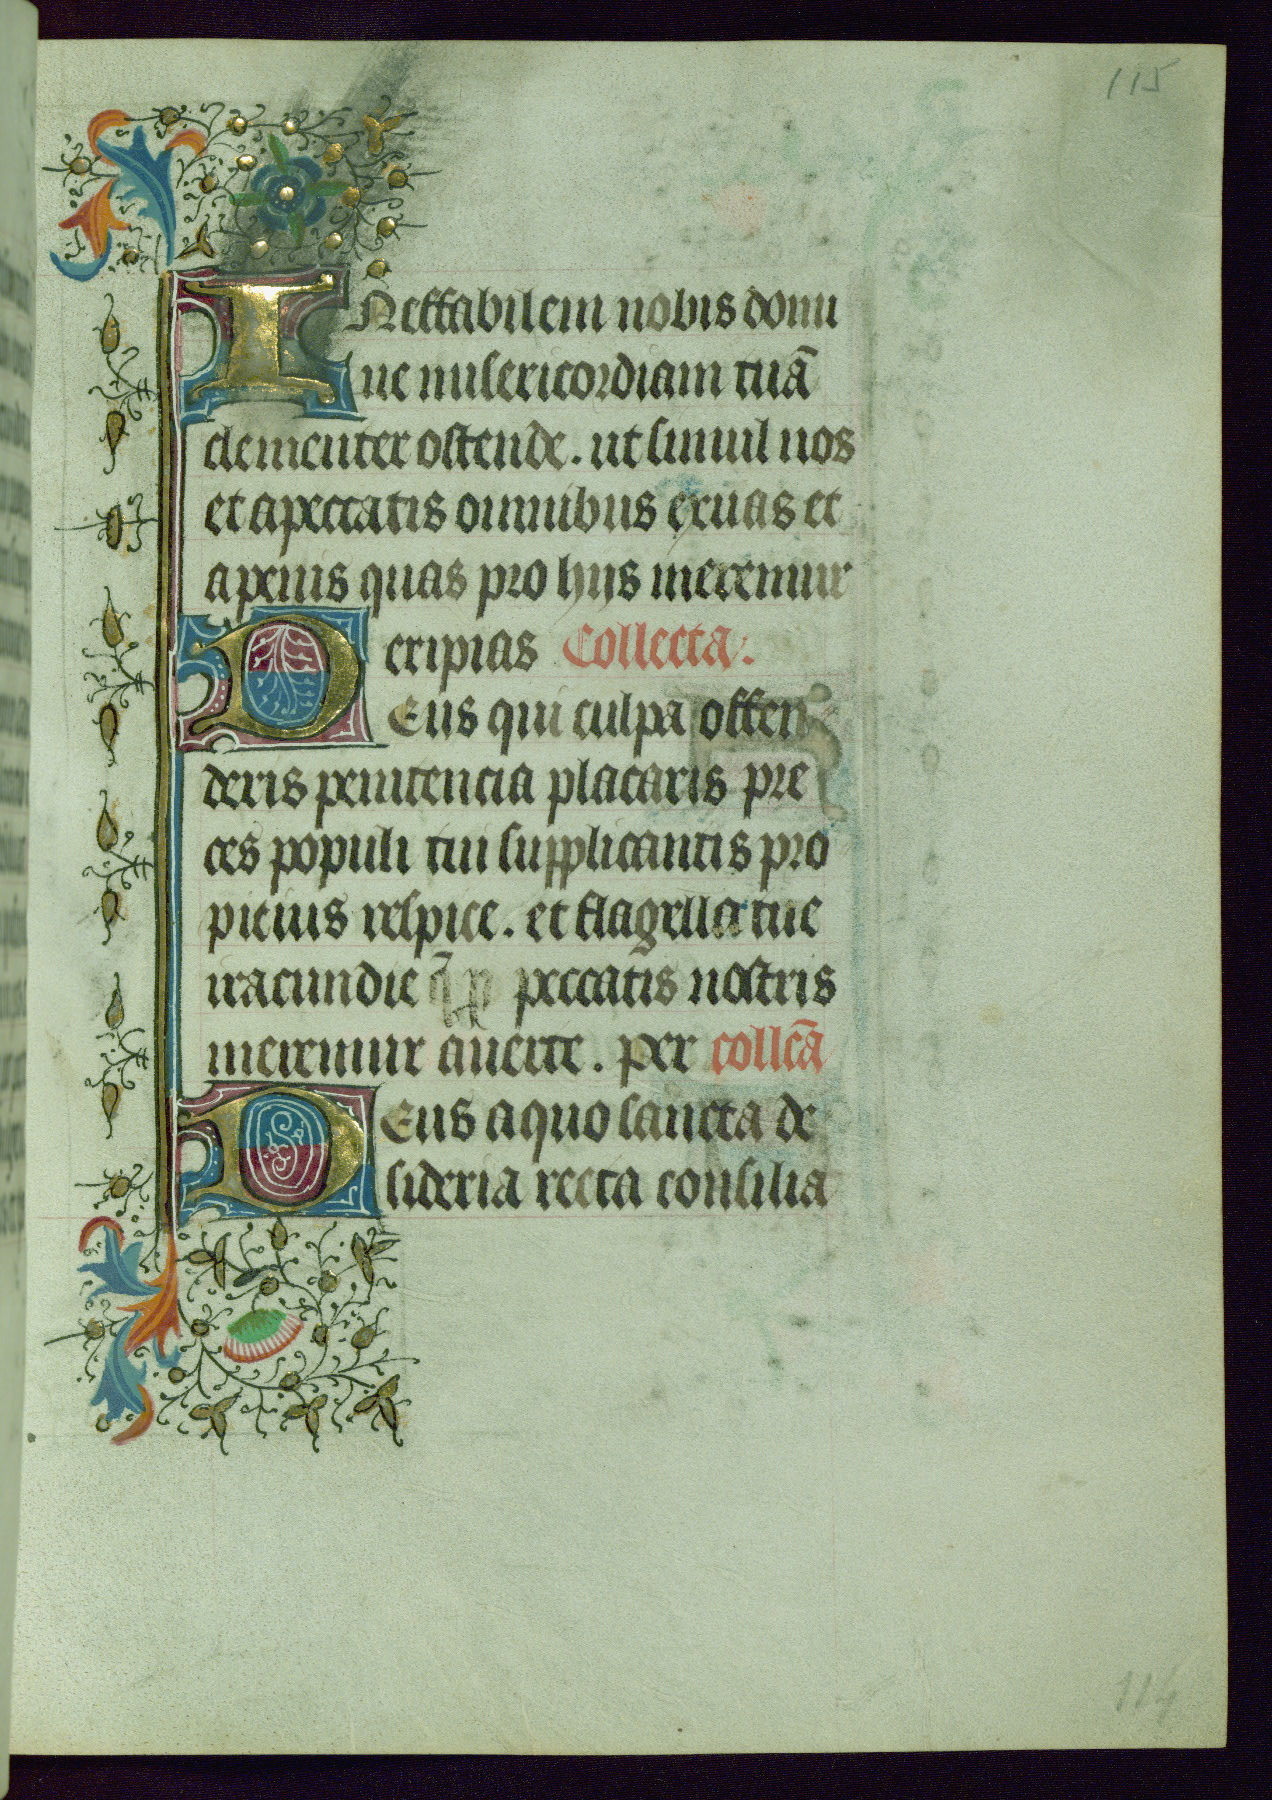 115
INeffabilem nobis domi
ne misericordiam tuā
clementer ostende. ut simul nos
et a peccatis omnibus exuas et
a penis quas pro hijs meremur
eripias Collecta.
Deus qui culpa offen
deris penitencia placaris pre
ces populi tui supplicantis pro
picius respice. et flagella tue
iracundie q̄ p̱ peccatis nostris
meremur auerte. per collcā
Deus a quo sancta de
sideria recta consilia
114